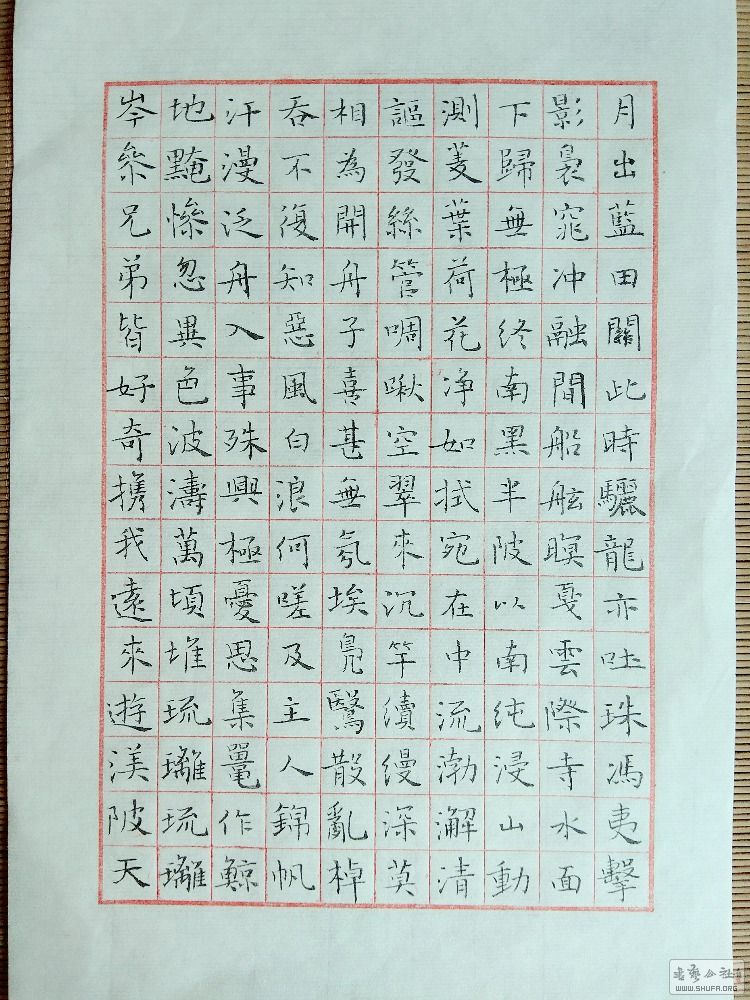 岑叅兄弟皆好奇携我遠來遊渼陂天
地黤慘忽異色波濤萬頃堆琉璃琉璃
汗漫泛舟入事殊興極憂思集鼉作鯨
吞不復知惡風白浪何嗟及主人錦帆
相為開舟子喜甚無氛埃鳧鷖散亂棹
謳發絲管啁啾空翠來沉竿續縵深莫
測菱葉荷花净如拭宛在中流渤澥清
下歸無極終南黑半陂以南純浸山動
影裊窕冲融間船舷暝戛雲際寺水面
月出藍田關此時驪龍亦吐珠馮夷擊
書藝公社
WWW.SHUFA.ORG